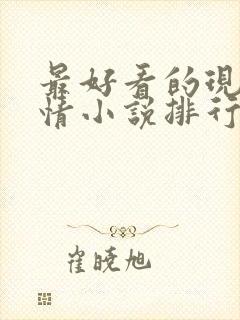 最好看的現
情小說排行
崔曉旭